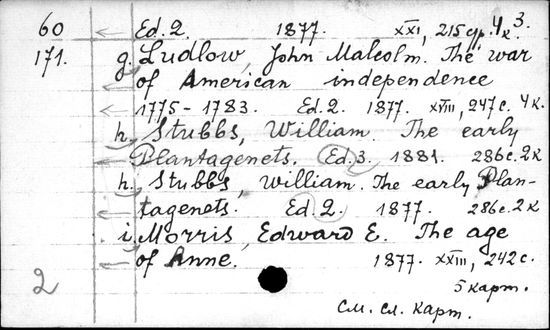 60 Ed. 2. 1877. XXI, 215 ср. 4к. 3.
171. g. Ludlow, John Malcolm. The war
of American independence
1775-1783. Ed. 2. 1877. XVIII, 247c. 4к.
h, Stubbs, William. The early
Plantagenets. Ed. 3. 1881. 286c. 2к
h, Stubbs, William. The early Plan-
tagenets. Ed. 2. 1877. 286c. 2к
i. Morris, Edward E. The age
of Anne. 1877. XXIII, 242c.
2 5 карт.
см. сл. карт.